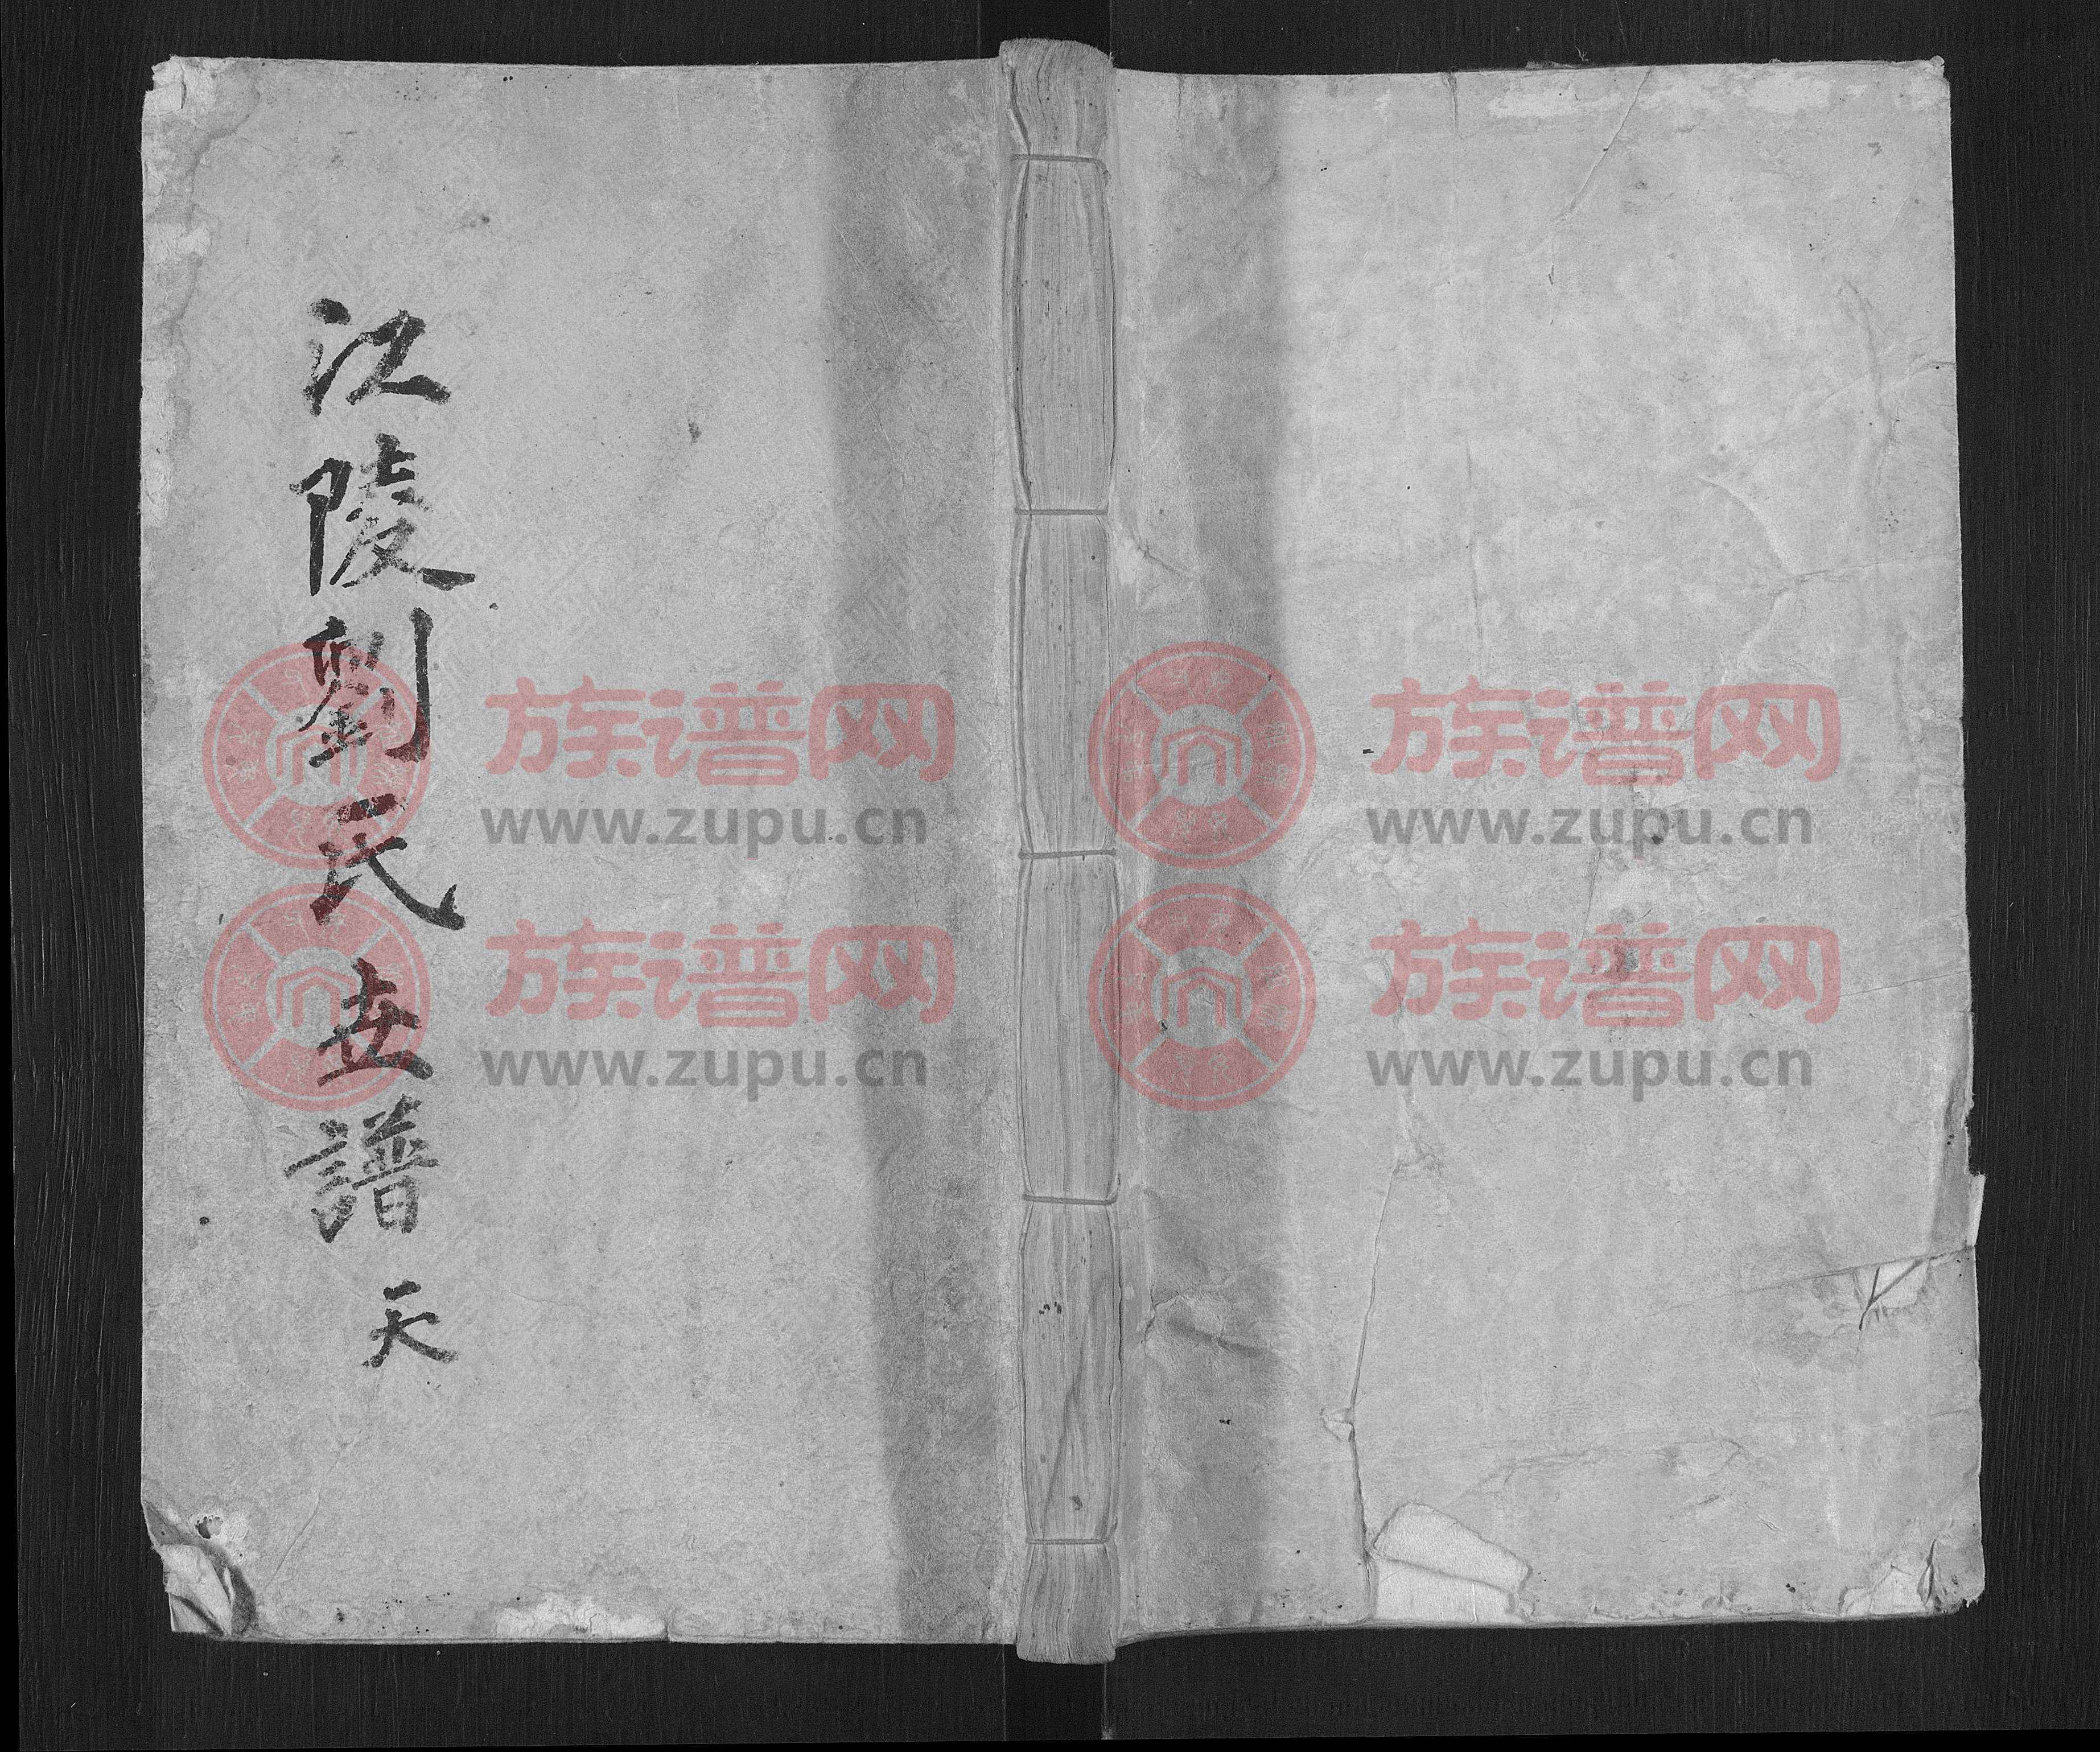 江陵劉氏世譜
天
族谱网
www.zupu.cn
族谱网
www.zupu.cn
族谱网
www.zupu.cn
族谱网
www.zupu.cn